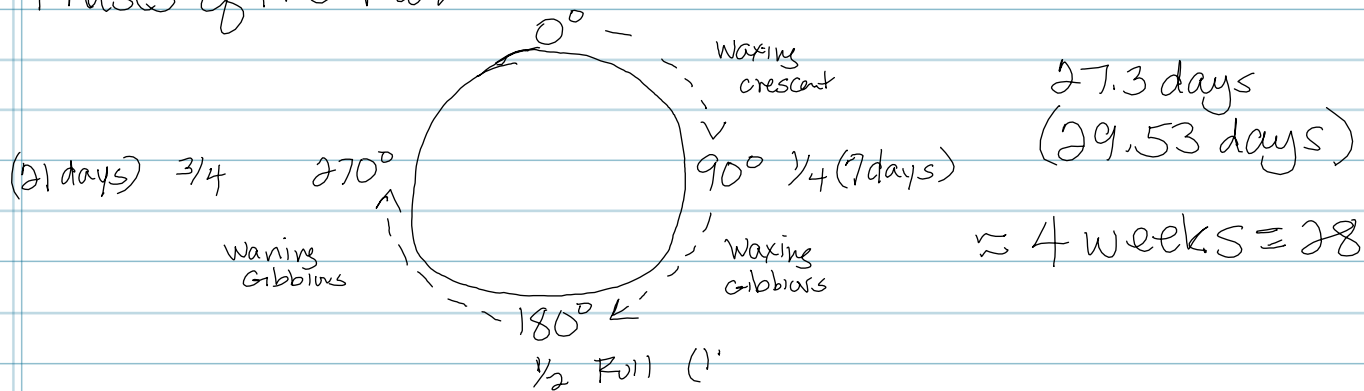 of the
0°
Waxing
crescent
27.3 days
(29.53 days)
(21 days) 3/4 270°
90° 1/4 (7 days)
≈ 4 weeks = 28
Waning
Gibbious
Waxing
Gibbious
180°
1/2 Full (1